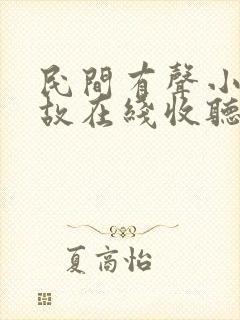 民間有聲小
故在綫收聽
夏高怡